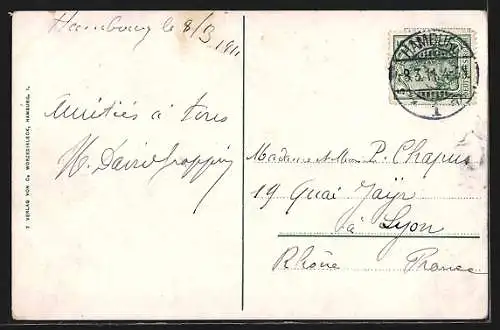 Hambourg le 8/3 1911
HAMBURG
8.3.11.4-5N
1
Amitiés à tous
Madame et Mons P. Chapus
19 Quai Jaÿr
à Lyon
Rhône France
VERLAG VON HAMBURG, 1.